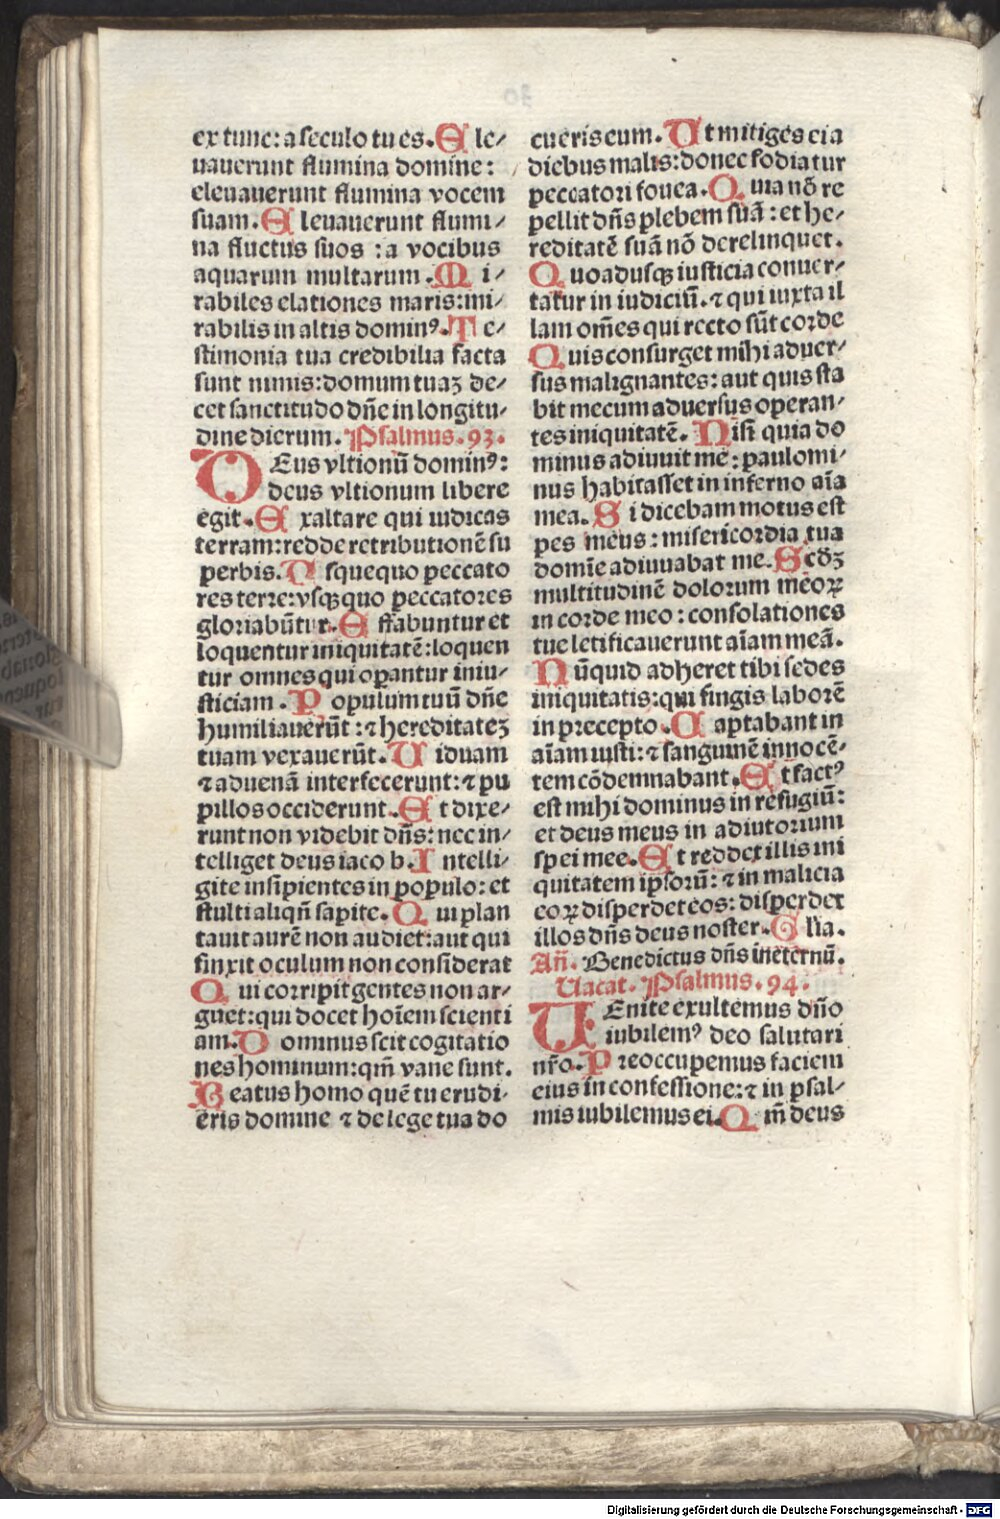 ex tunc: a seculo tu es. Ele/
uauerunt flumina domine:
eleuauerunt flumina vocem
suam. Eleuauerunt flumi/
na fluctus suos : a vocibus
aquarum multarum. Mi/
rabiles elationes maris: mi/
rabilis in altis dominꝰ. Te/
stimonia tua credibilia facta
sunt nimis: domum tuaꝫ de/
cet sanctitudo dñe in longitu/
dine dierum. Psalmus .93.
DEus vltionũ dominꝰ:
deus vltionum libere
egit. Exaltare qui iudicas
terram: redde retributionẽ su
perbis. Usquequo peccato
res terre: vsqꝫ quo peccatores
gloriabũtur. Effabuntur et
loquentur iniquitatẽ: loquen
tur omnes qui operantur iniu/
sticiam . Populum tuũ dñe
humiliauerũt : ⁊ hereditateꝫ
tuam vexauerũt. Uiduam
⁊ aduenã interfecerunt: ⁊ pu
pillos occiderunt. Et dixe/
runt non videbit dñs: nec in/
telliget deus iacob. Intelli/
gite insipientes in populo: et
stulti aliqñ sapite. Qui plan
tauit aurẽ non audiet: aut qui
finxit oculum non considerat
Qui corripit gentes non ar/
guet: qui docet hoĩem scienti
am. Dominus scit cogitatio
nes hominum: qm̃ vane sunt.
Beatus homo quẽ tu erudi/
eris domine ⁊ de lege tua do
cueris eum. Ut mitiges ei a
diebus malis: donec fodiatur
peccatori fouea. Quia nõ re
pellit dñs plebem suã : et he/
reditatẽ suã nõ derelinquet.
Quoadusqꝫ iusticia conuer/
tatur in iudiciũ. ⁊ qui iuxta il
lam om̃es qui recto sũt corde
Quis consurget mihi aduer/
sus malignantes: aut quis sta
bit mecum aduersus operan/
tes iniquitatẽ. Nisi quia do
minus adiuuit me : paulomi/
nus habitasset in inferno aĩa
mea. Si dicebam motus est
pes meus : misericordia tua
domĩe adiuuabat me. Scd̃ꝫ
multitudinẽ dolorum meoꝝ
in corde meo : consolationes
tue letificauerunt aĩam meã.
Nũquid adheret tibi sedes
iniquitatis: qui fingis laborẽ
in precepto . Captabant in
aĩam iusti: ⁊ sanguinẽ innocẽ/
tem cõdemnabant. Et factꝰ
est mihi dominus in refugiũ:
et deus meus in adiutorium
spei mee. Et reddet illis ini
quitatem ipsorũ: ⁊ in malicia
eoꝝ disperdet eos: disperdet
illos dñs deus noster. Glĩa.
Añ. Benedictus dñs in eternũ.
Uacat. Psalmus .94.
UEnite exultemus dño
iubilemꝰ deo salutari
nr̃o. Preoccupemus faciem
eius in confessione: ⁊ in psal/
mis iubilemus ei. Qm̃ deus
Digitalisierung gefördert durch die Deutsche Forschungsgemeinschaft - DFG